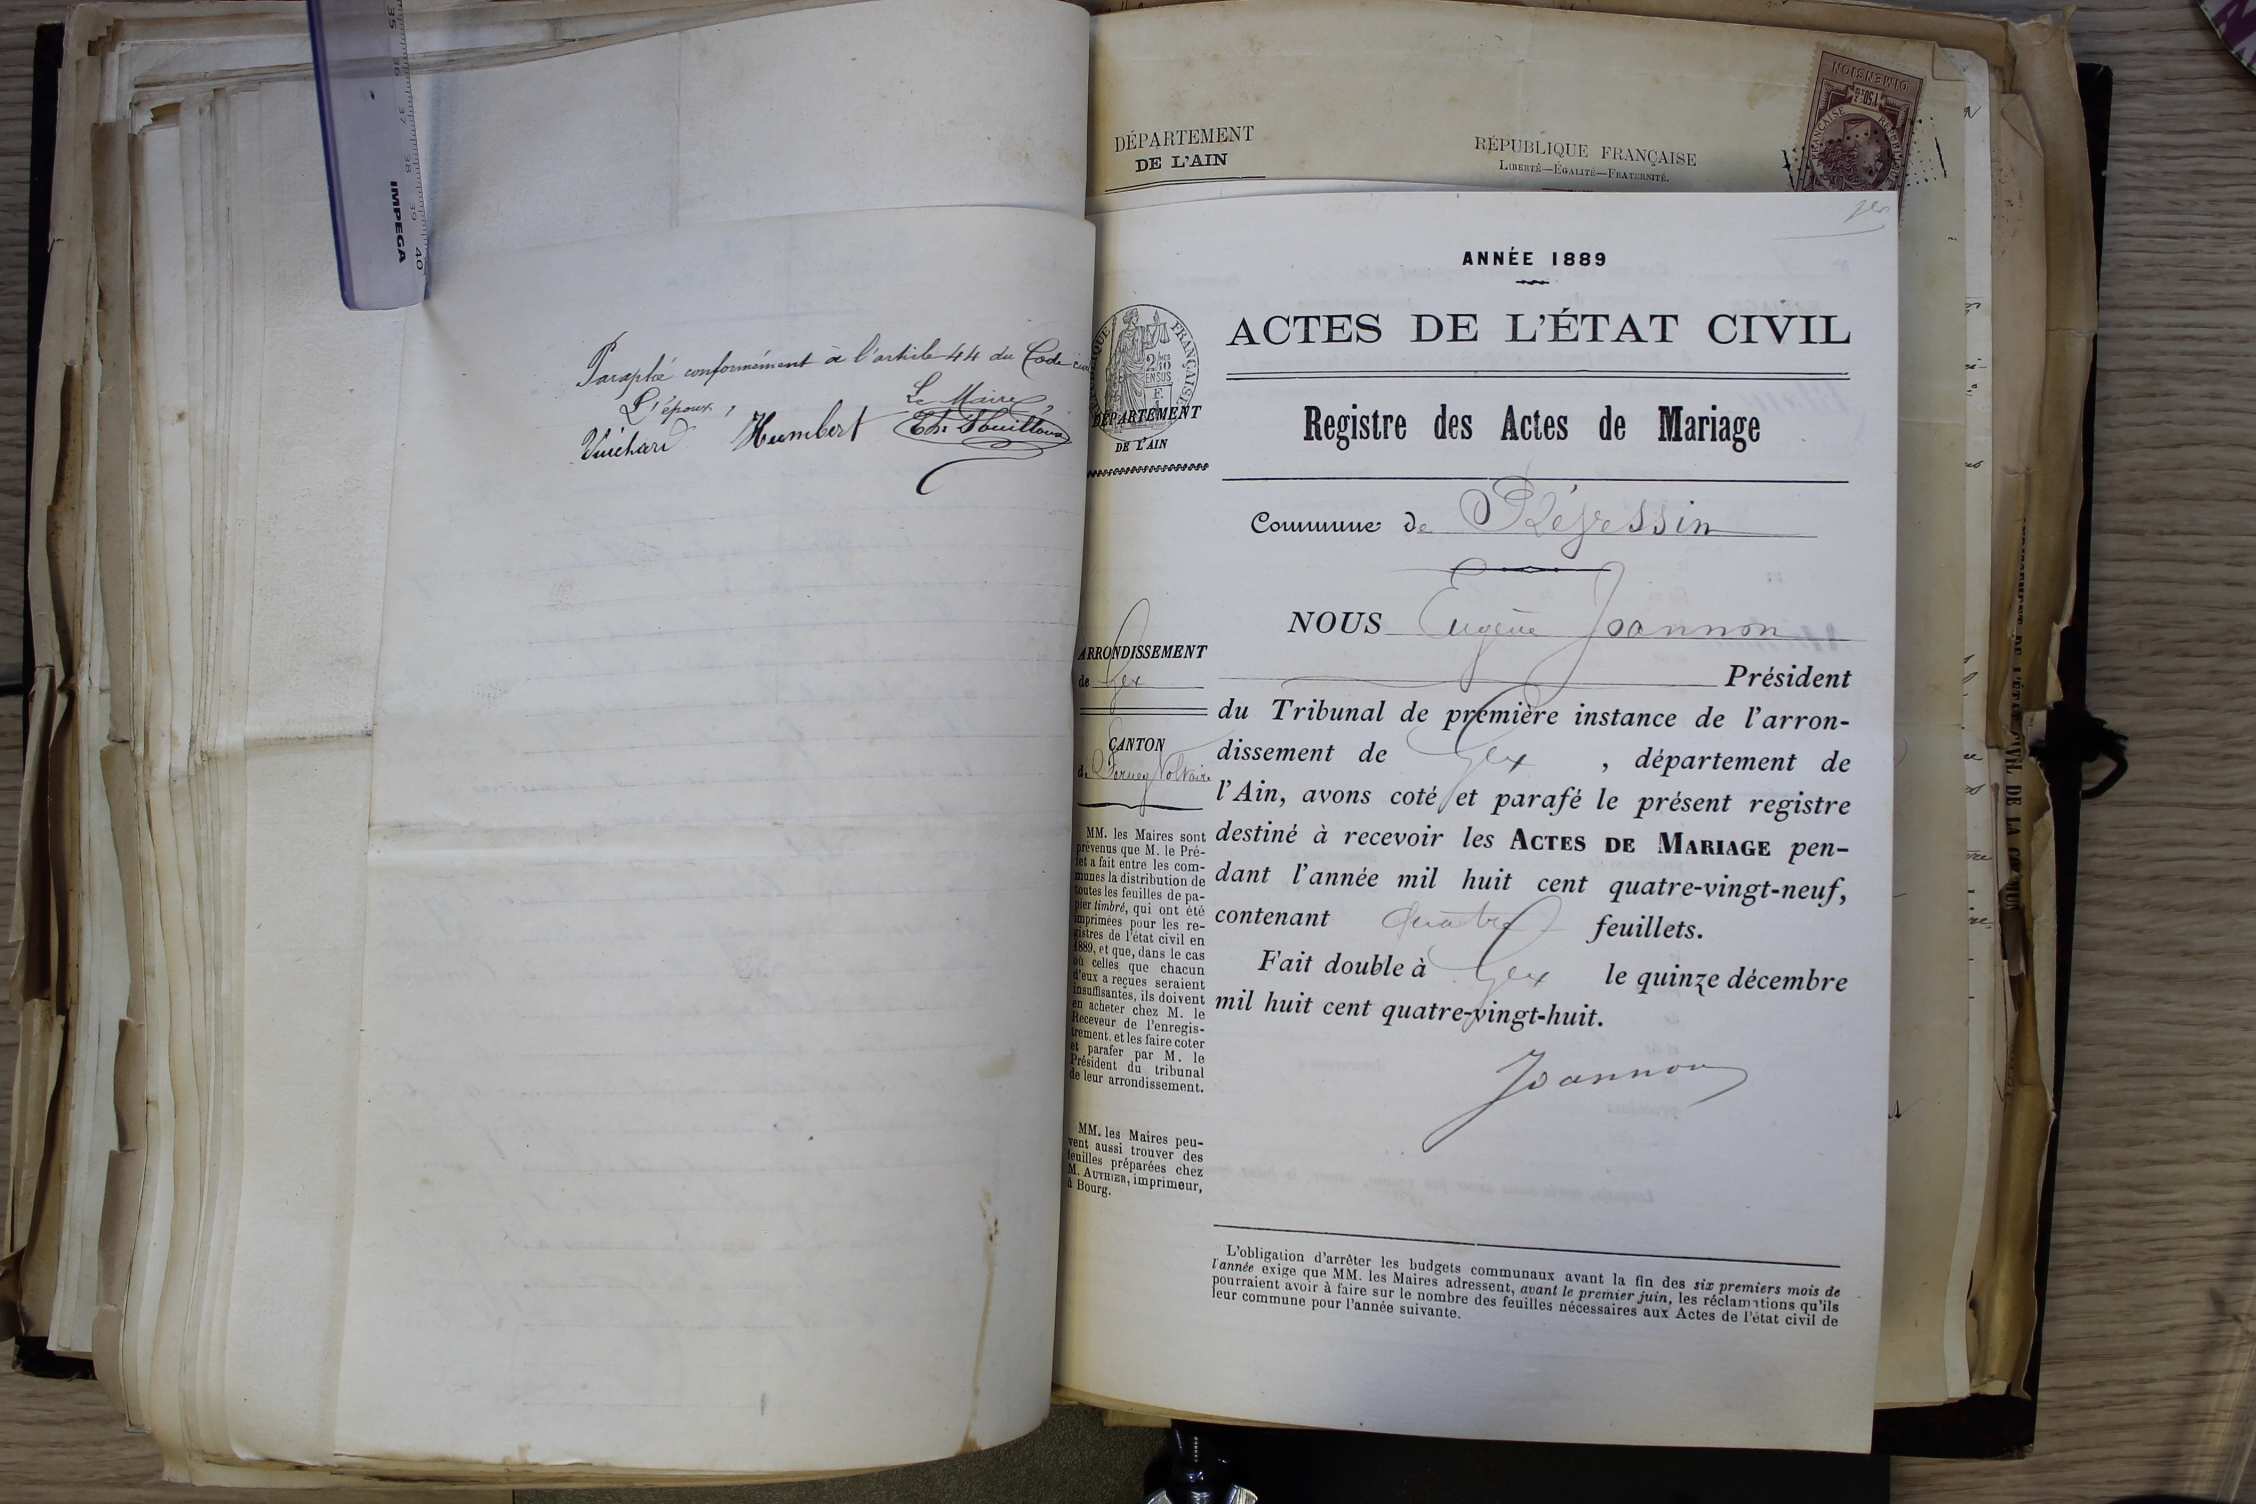 Paraphé conformément à l'article 44 du Code civ
L'époux,
Le Maire,
Humbert
DÉPARTEMENT
DE L'AIN
RÉPUBLIQUE FRANÇAISE
LIBERTÉ—ÉGALITÉ—FRATERNITÉ.
DIMENSION
ANNÉE 1889
ACTES DE L'ÉTAT CIVIL
DÉPARTEMENT
DE L'AIN
Registre des Actes de Mariage
Commune de Prégessin
NOUS Eugène Joannon
Président
du Tribunal de première instance de l'arron-
dissement de Gex, département de
l'Ain, avons coté et parafé le présent registre
destiné à recevoir les ACTES DE MARIAGE pen-
dant l'année mil huit cent quatre-vingt-neuf,
contenant quatre feuillets.
Fait double à Gex le quinze décembre
mil huit cent quatre-vingt-huit.
Joannon
ARRONDISSEMENT
de Gex
CANTON
de Ferney Voltaire
MM. les Maires sont
prévenus que M. le Pré-
fet a fait entre les com-
munes la distribution de
toutes les feuilles de pa-
pier timbré, qui ont été
imprimées pour les re-
gistres de l'état civil en
1889, et que, dans le cas
où celles que chacun
d'eux a reçues seraient
insuffisantes, ils doivent
en acheter chez M. le
Receveur de l'enregis-
trement, et les faire coter
et parafer par M. le
Président du tribunal
de leur arrondissement.
MM. les Maires peu-
vent aussi trouver des
feuilles préparées chez
M. AUTHIER, imprimeur,
à Bourg.
L'obligation d'arrêter les budgets communaux avant la fin des six premiers mois de
l'année exige que MM. les Maires adressent, avant le premier juin, les réclamations qu'ils
pourraient avoir à faire sur le nombre des feuilles nécessaires aux Actes de l'état civil de
leur commune pour l'année suivante.
IMPEGA